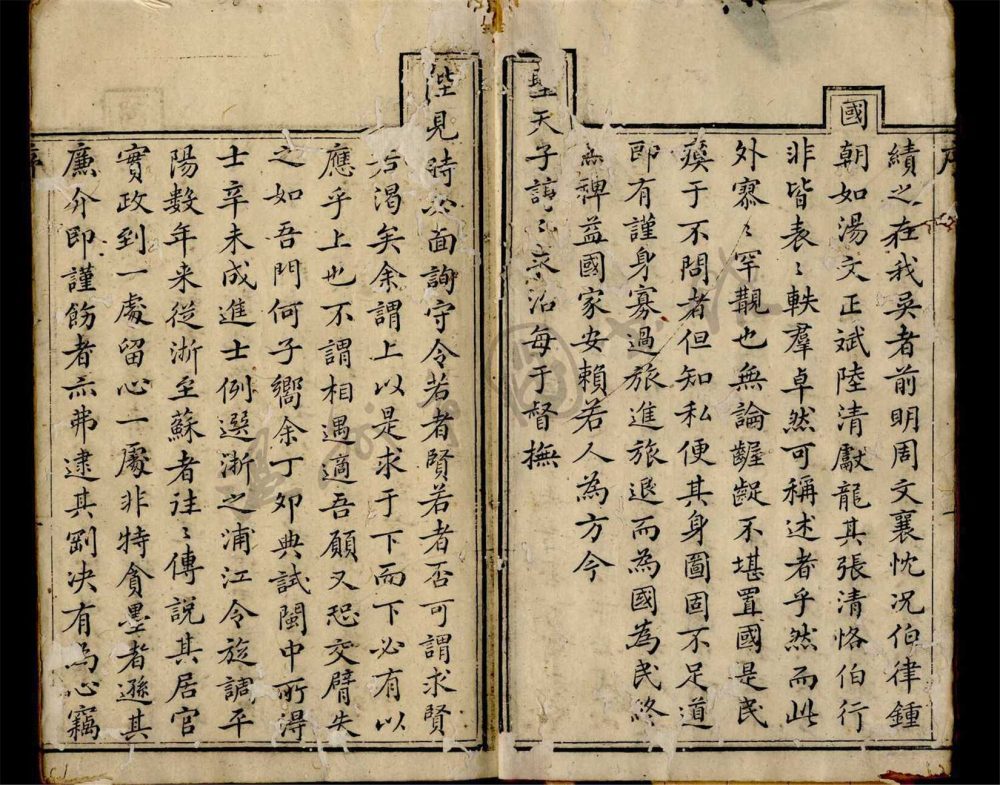 序
績之在我吳者前明周文襄忱况伯律鍾
國朝如湯文正斌陸清獻龍其張清恪伯行
非皆表〻軼羣卓然可稱述者乎然而此
外寥〻罕覯也無論齷齪不堪置國是民
瘼于不問者但知私便其身圖固不足道
即有謹身寡過旅進旅退而為國為民終
無裨益國家安賴若人為方今
聖天子諄〻求治每于督撫
陛見時必面詢守令若者賢若者否可謂求賢
若渴矣余謂上以是求于下而下必有以
應乎上也不謂相遇適吾願又恐交臂失
之如吾門何子嚮余丁卯典試閩中所得
士辛未成進士例選浙之浦江令旋調平
陽数年来從浙至蘇者往〻傳說其居官
實政到一處留心一處非特貪墨者遜其
廉介即謹飭者亦弗逮其剛决有為心竊
序